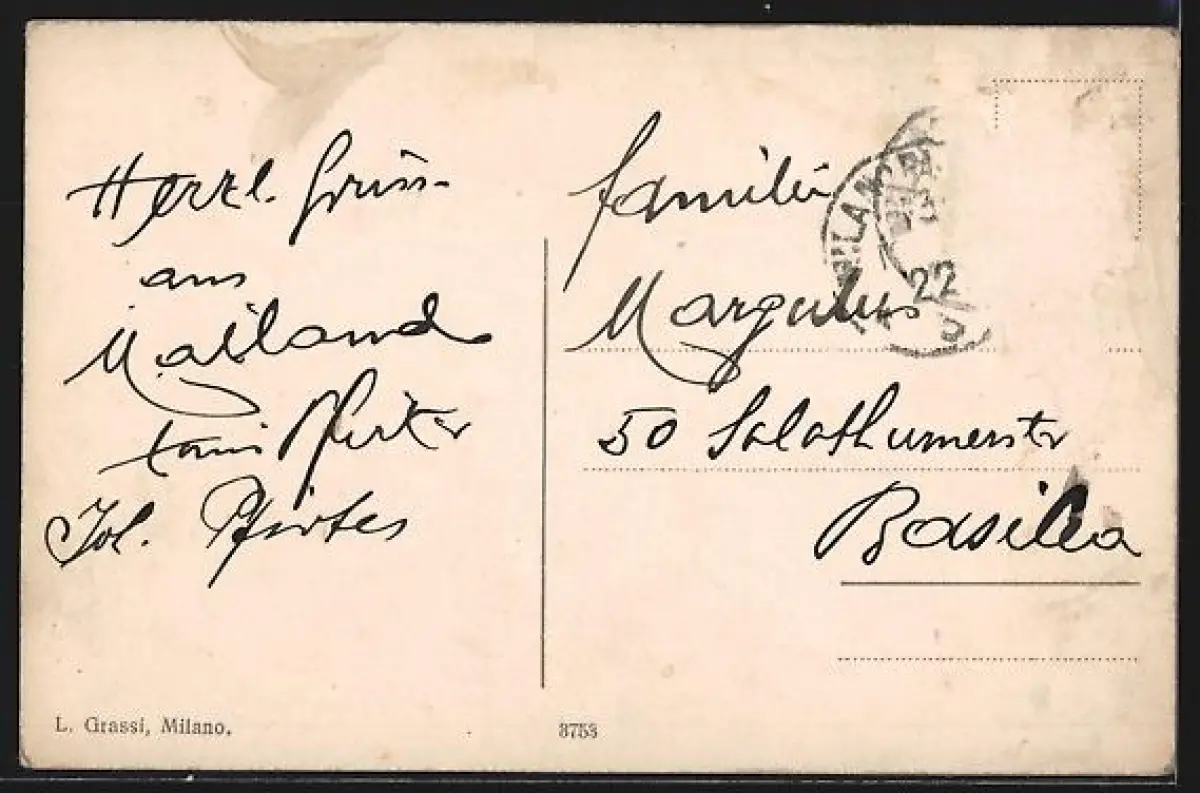 Herzl. Grüss
aus
Mailand
Pfirter
Jol. Pfirter
Familie
Margulius
50 Solothurnerstr
Basilea
MILANO
22
L. Grassi, Milano.
3753